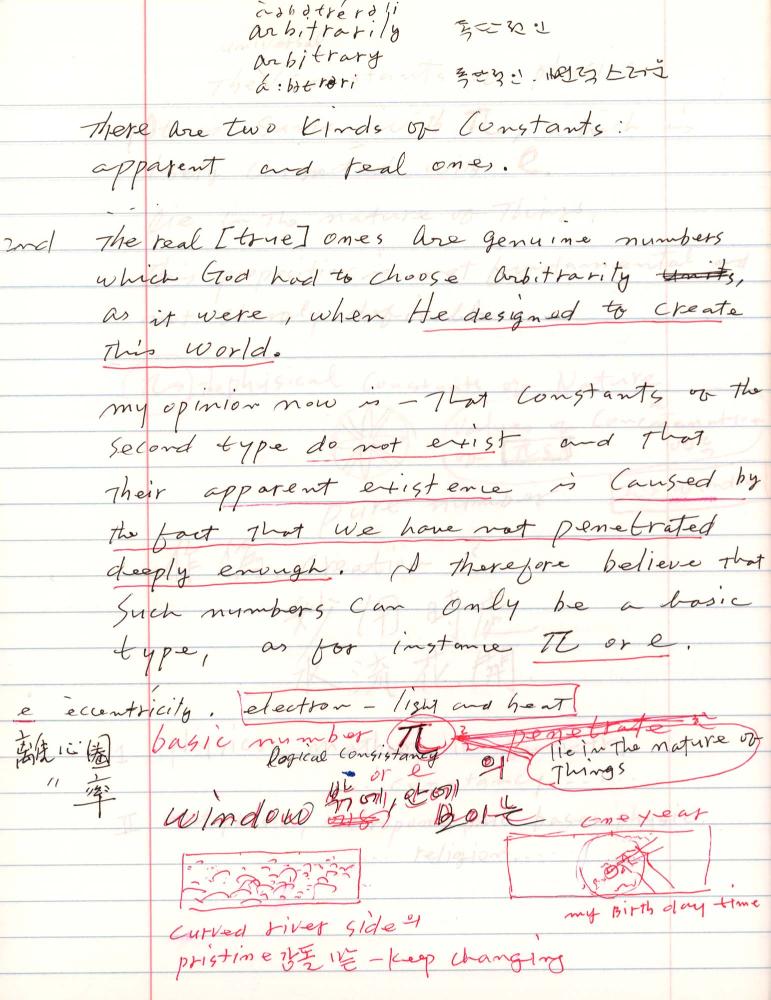 arbitrarily 독단적인
arbitrary
a:bətrəri 독단적인. 변덕스러운
There are two kinds of Constants:
apparent and real ones.
2nd The real [true] ones are genuine numbers
which God had to choose arbitrarity units,
as it were, when He designed to create
This world.
my opinion now is – That constants of the
second type do not exist and that
Their apparent existence is Caused by
the fact that we have not penetrated
deeply enough. I therefore believe that
Such numbers can only be a basic
type, as for instance π or e.
e eccentricity. electron – light and heat
離心圈 basic number π penetrate
logical consistancy
lie in The nature of
Things
〃 率
or e 의
window 밖에, 안에
보이는
one year
my Birth day time
curved river side 의
pristine 는 – keep changing